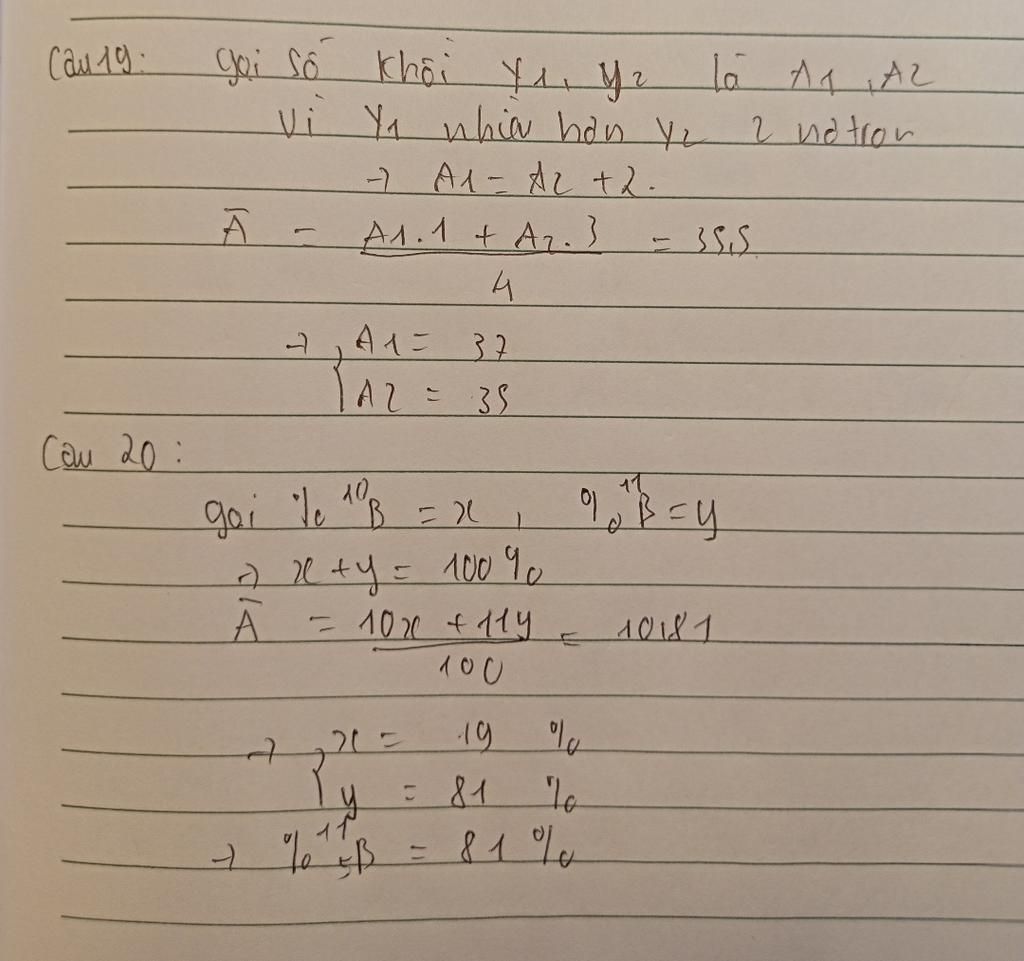 Câu 19: gọi số khối Y1, Y2 là A1, A2
Vì Y1 nhiều hơn Y2 2 nơtron
→ A1 = A2 + 2.
Ā = (A1.1 + A2.3)/4 = 35,5
→ { A1 = 37
A2 = 35
Câu 20:
gọi % ¹⁰B = x, % ¹¹B = y
→ x + y = 100%
Ā = (10x + 11y)/100 = 10,81
→ { x = 19 %
y = 81 %
→ % ¹¹₅B = 81 %